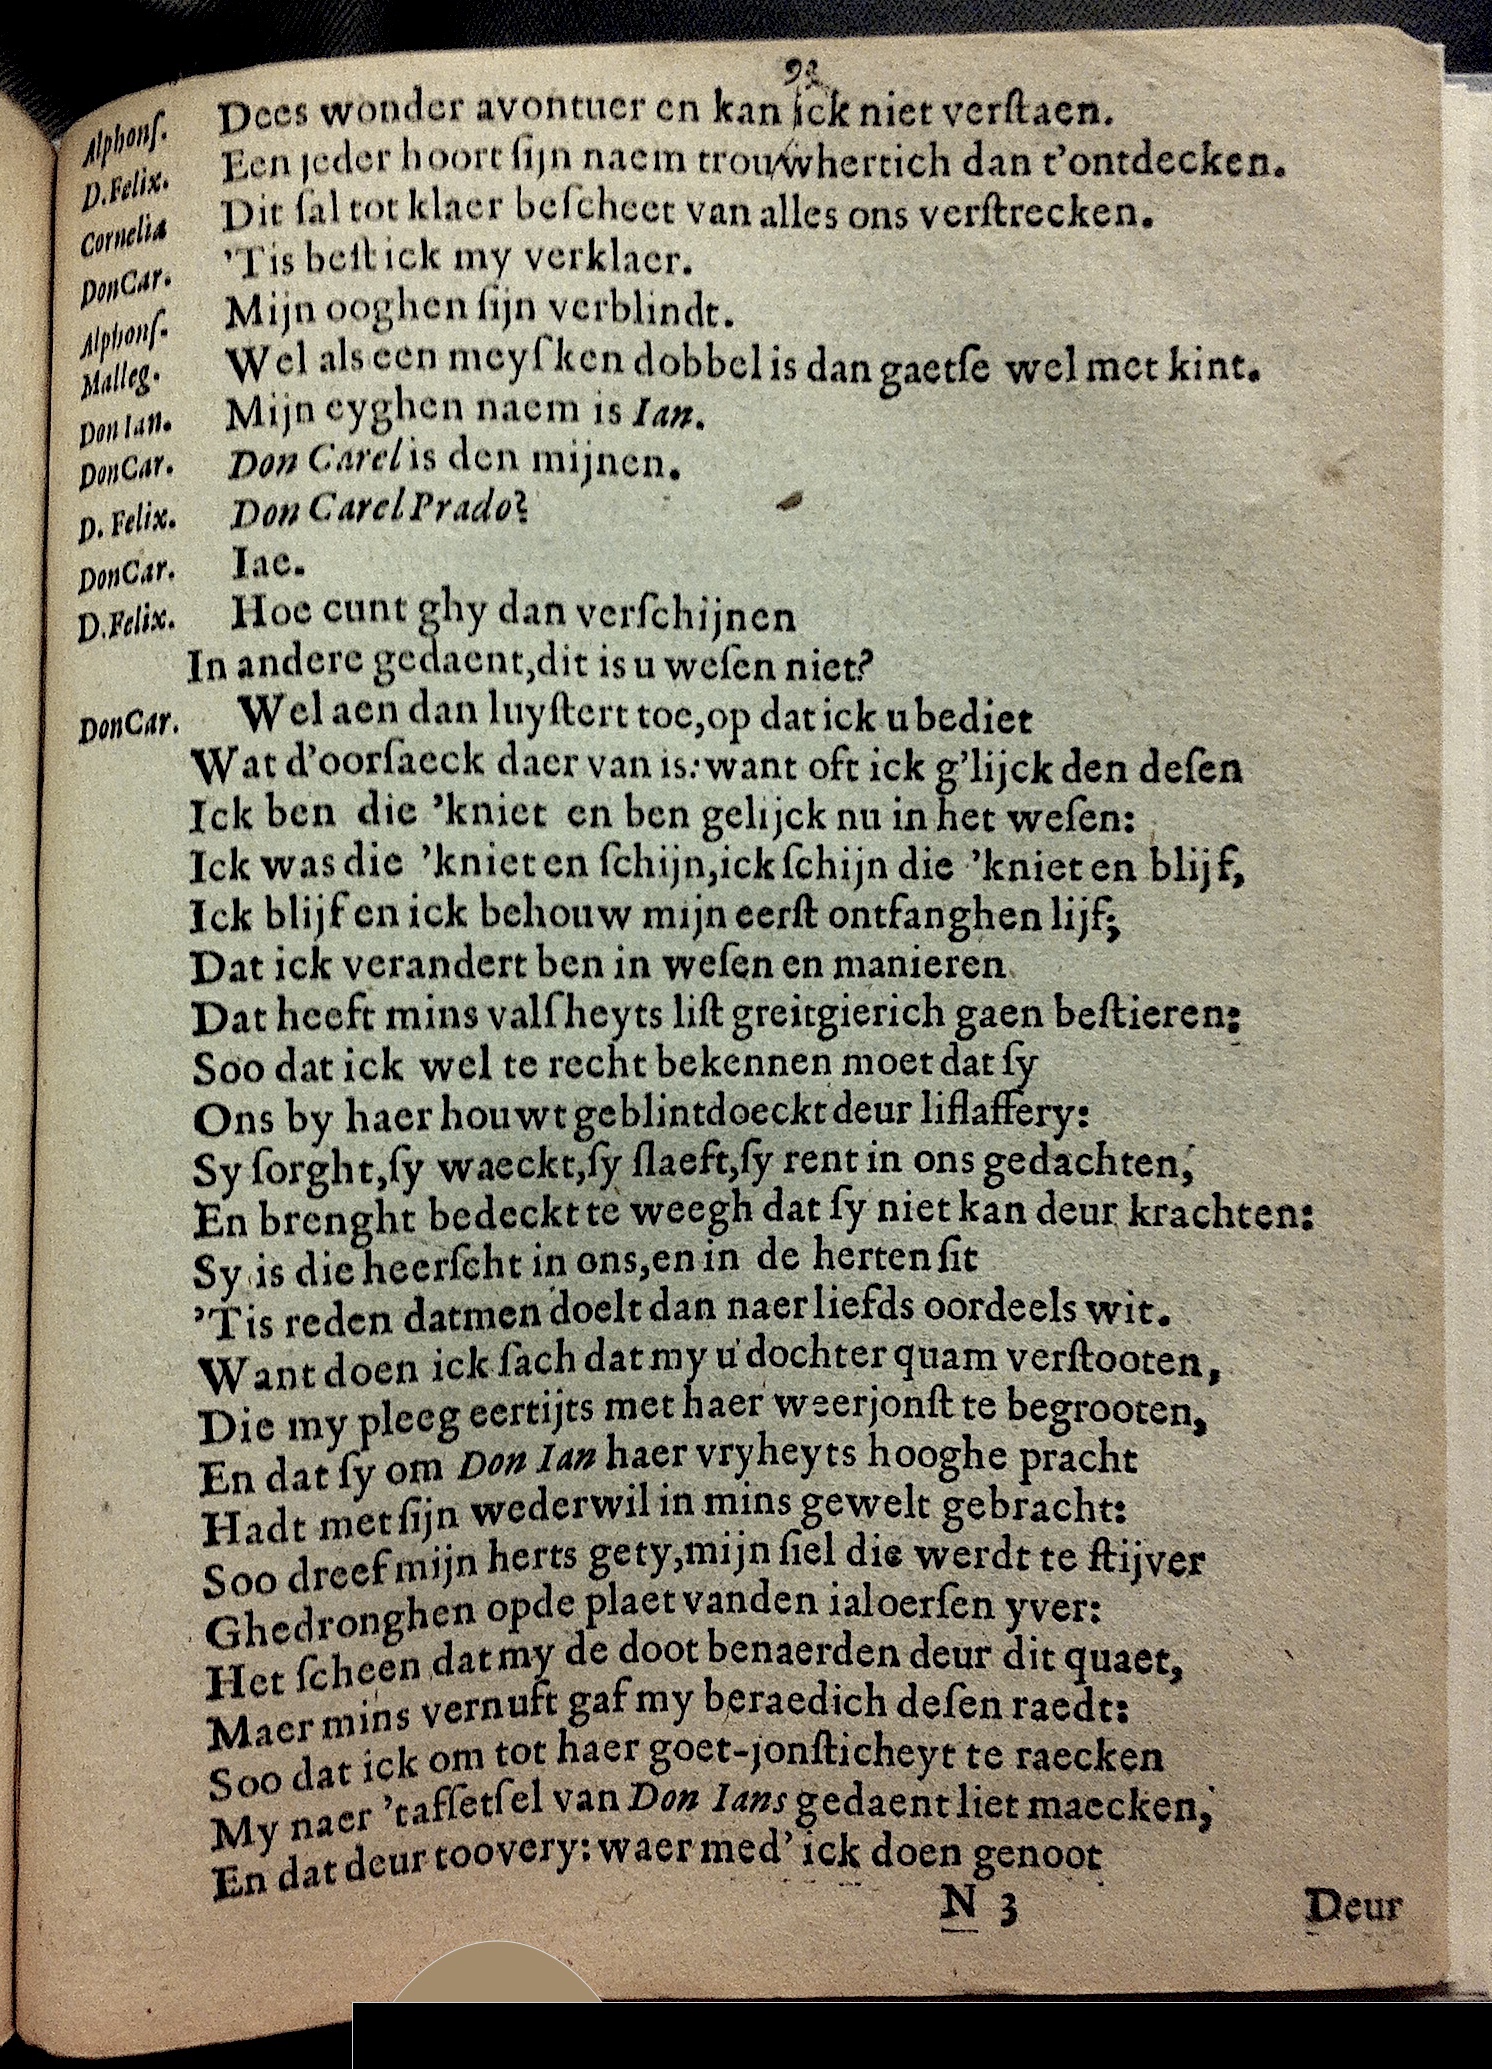 92
Alphonſ. Dees wonder avontuer en kan ick niet verſtaen.
D.Felix. Een jeder hoort ſijn naem trouwhertich dan t'ontdecken.
Cornelia Dit ſal tot klaer beſcheet van alles ons verſtrecken.
DonCar. 'Tis beſt ick my verklaer.
Alphonſ. Mijn ooghen ſijn verblindt.
Malleg. Wel als een meyſken dobbel is dan gaetſe wel met kint.
Don Ian. Mijn eyghen naem is Ian.
DonCar. Don Carel is den mijnen.
D. Felix. Don Carel Prado?
DonCar. Iae.
D.Felix. Hoe cunt ghy dan verſchijnen
In andere gedaent,dit is u weſen niet?
DonCar. Wel aen dan luyſtert toe,op dat ick u bediet
Wat d'oorſaeck daer van is:want oft ick g'lijck den deſen
Ick ben die 'kniet en ben gelijck nu in het weſen:
Ick was die 'kniet en ſchijn,ick ſchijn die 'kniet en blijf,
Ick blijf en ick behouw mijn eerſt ontfanghen lijf;
Dat ick verandert ben in weſen en manieren
Dat heeft mins valſheyts liſt greitgierich gaen beſtieren:
Soo dat ick wel te recht bekennen moet dat ſy
Ons by haer houwt geblintdoeckt deur liflaffery:
Sy ſorght,ſy waeckt,ſy ſlaeft,ſy rent in ons gedachten,
En brenght bedeckt te weegh dat ſy niet kan deur krachten:
Sy is die heerſcht in ons,en in de herten ſit
'Tis reden datmen doelt dan naer liefds oordeels wit.
Want doen ick ſach dat my u dochter quam verſtooten,
Die my pleeg eertijts met haer weerjonſt te begrooten,
En dat ſy om Don Ian haer vryheyts hooghe pracht
Hadt met ſijn wederwil in mins gewelt gebracht:
Soo dreef mijn herts gety,mijn ſiel die werdt te ſtijver
Ghedronghen opde plaet vanden ialoerſen yver:
Het ſcheen dat my de doot benaerden deur dit quaet,
Maer mins vernuft gaf my beraedich deſen raedt:
Soo dat ick om tot haer goet-jonſticheyt te raecken
My naer 'taſſetſel van Don Ians gedaent liet maecken,
En dat deur toovery:waer med' ick doen genoot
N 3 Deur